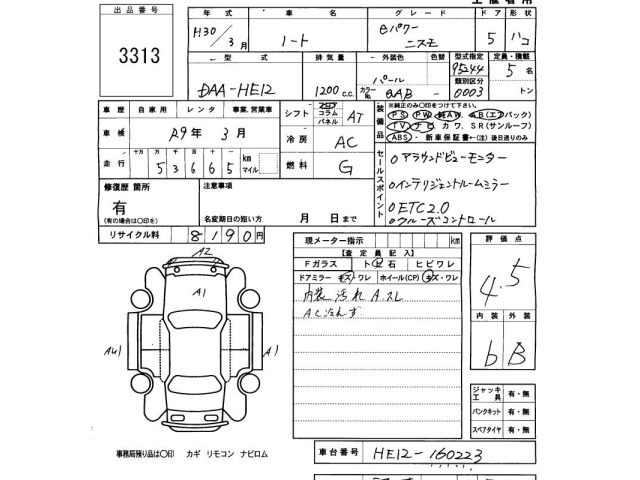 出品番号
3313
年式 車名 グレード ドア 形状
H30/3月 ノート eパワー ニスモ 5 ハコ
型式 排気量 外装色 色替 型式指定 定員・積載
DAA-HE12 1200c.c. パール カラーNo. QAB - 95244 類別区分 0003 5名 トン
車歴 自家用 レンタ 事業.営業車
シフト フロア コラム パネル AT
装備品 ※純正のみ〇印をつけて下さい。
PS PW 純AW AB(エアバック)
TV ナビ カワ SR(サンルーフ)
ABS ・新車保証書←(注)後日送りのみ
車検 R9年 3月
冷房 AC
走行 十万 万 千 百 十 km マイル
5 3 6 6 5
燃料 G
セールスポイント
○アラウンドビューモニター
○インテリジェントルームミラー
○ETC2.0
○クルーズコントロール
修復歴 箇所
有
(有の場合は〇印を)
注意事項
名変期日の短い方 月 日まで
リサイクル料 8190円
現メーター指示 km
【査定員記入】
Fガラス トビ石 ヒビワレ
ドアミラー キズ・ワレ ホイール(CP) キズ・ワレ
内装汚れ A.スレ
AC冷えず
評価点
4.5
内装 外装
b B
A2
A1
AU1
A1
ジャッキ工具 有・無
パンクキット 有・無
スペアタイヤ 有・無
事務局残り品は〇印 カギ リモコン ナビロム
車台番号 HE12-160223